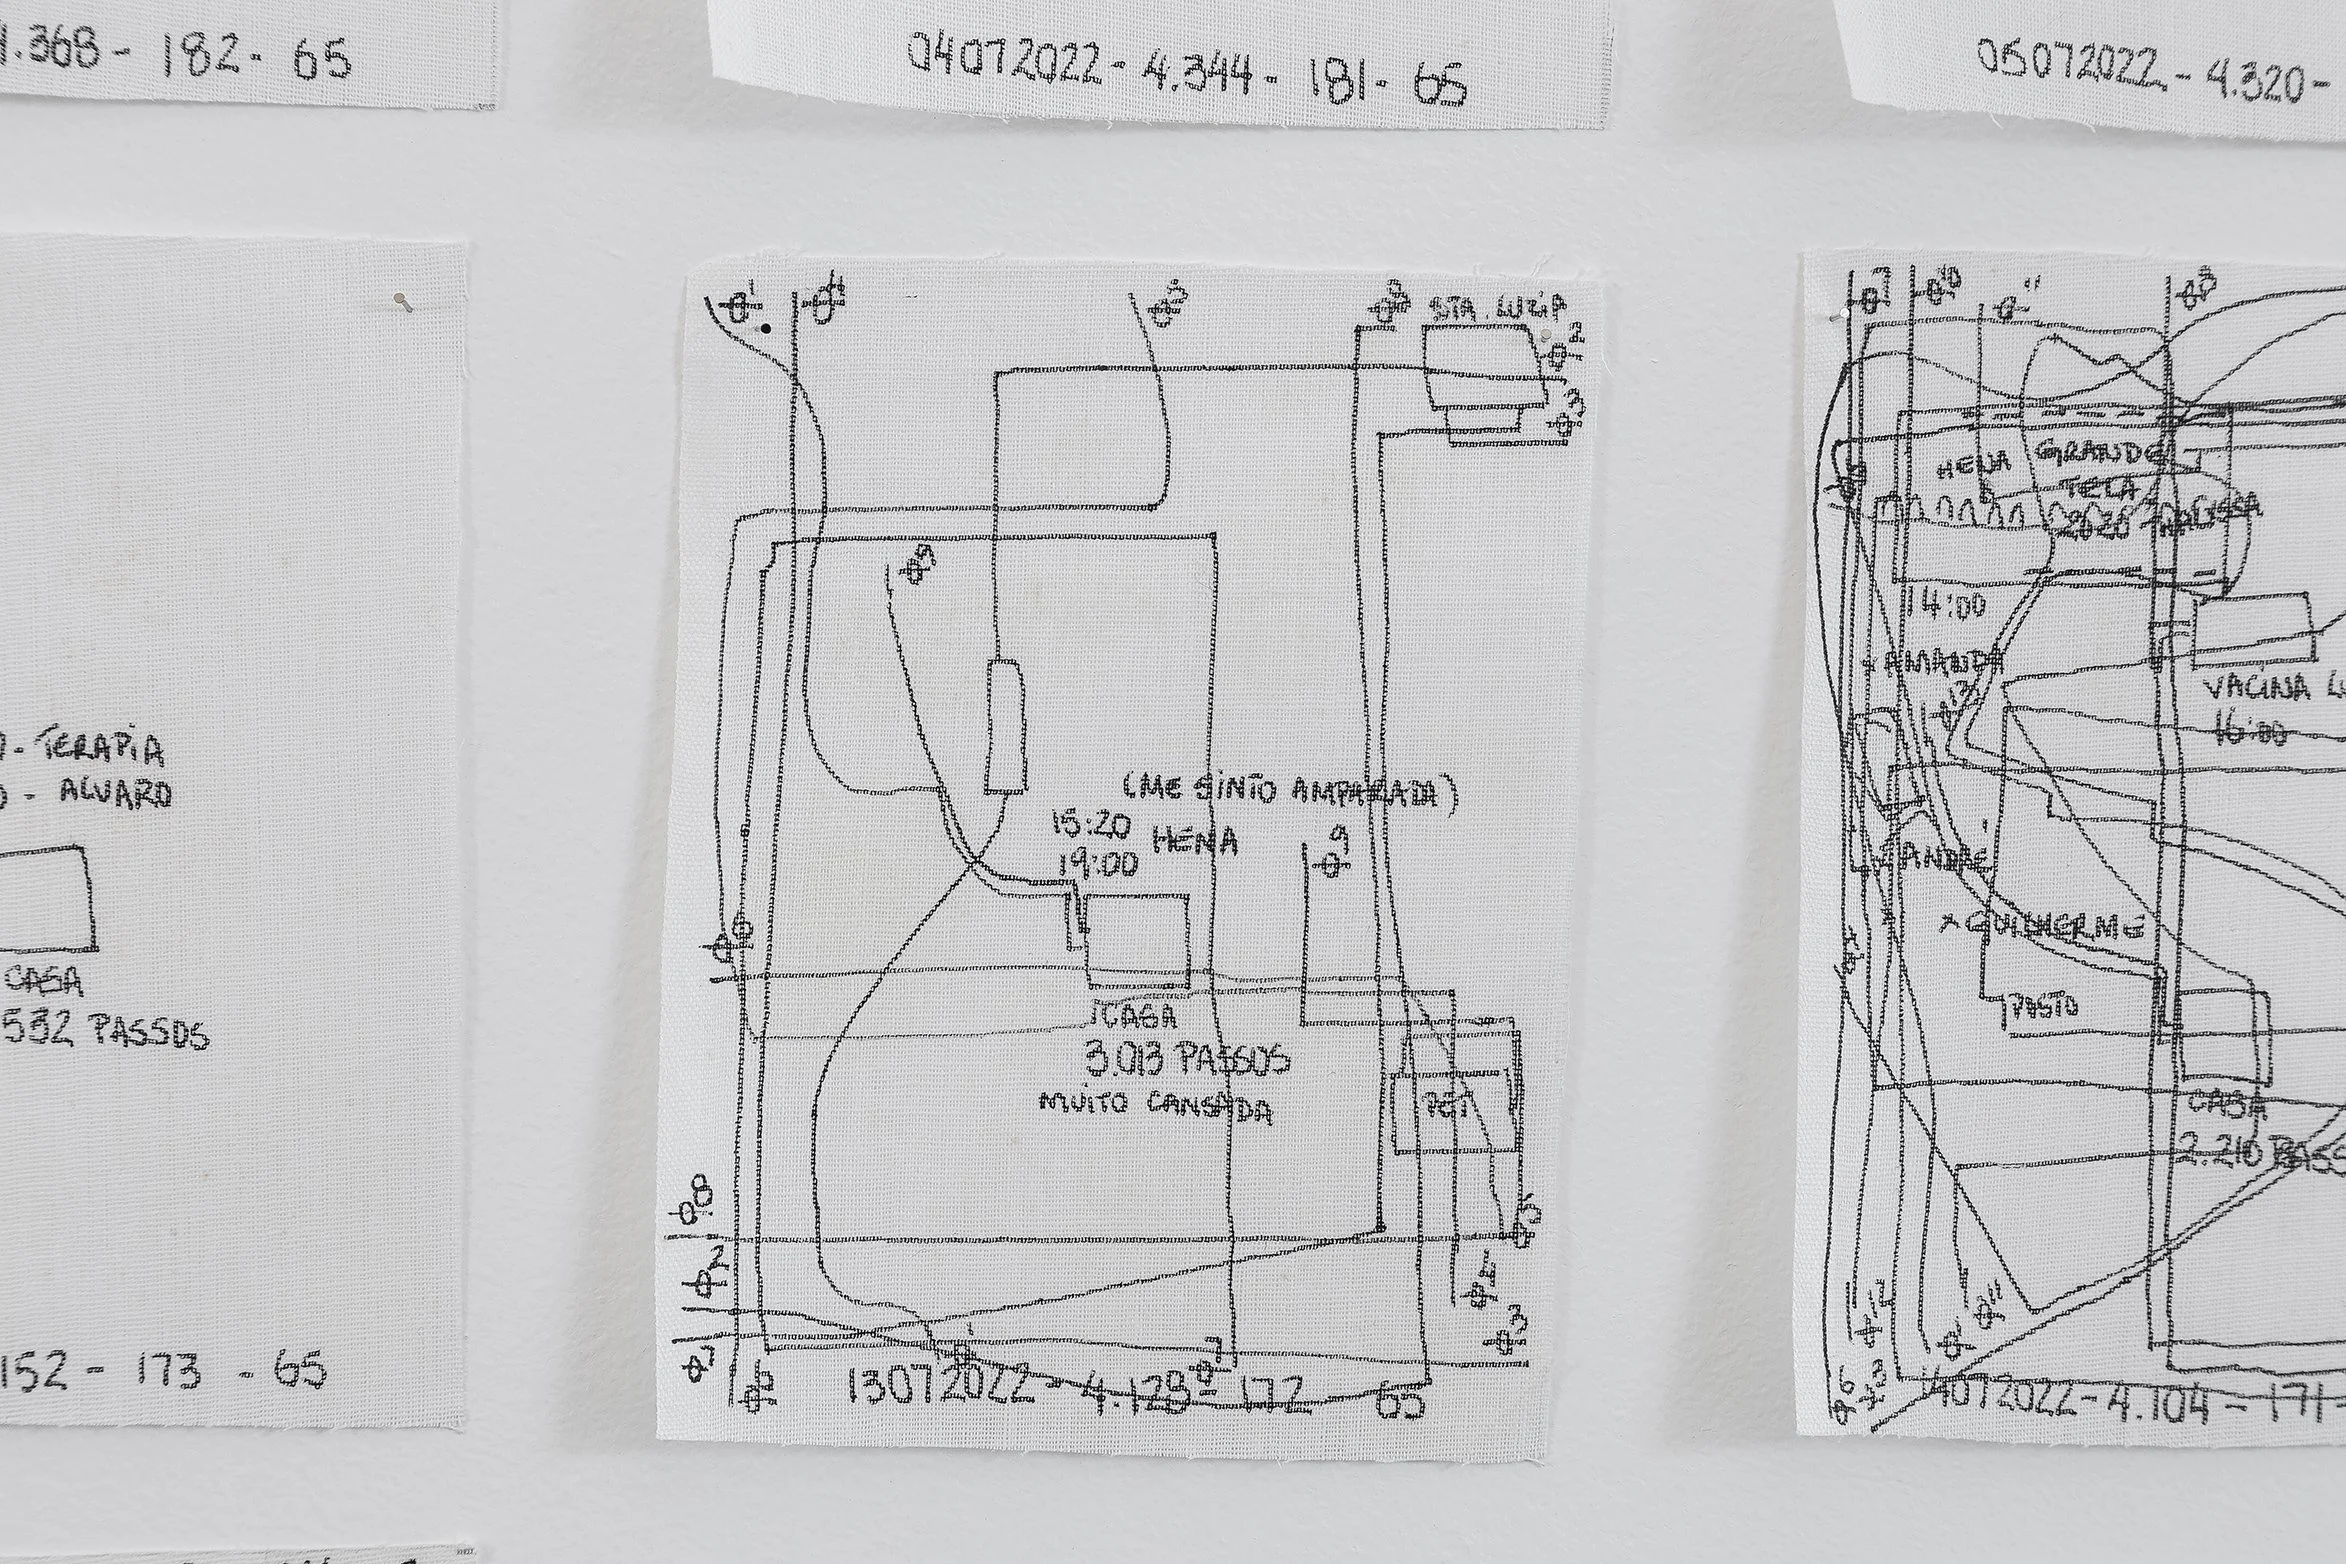 .368 - 182 - 65
04072022 - 4.344 - 181 - 65
05072022 - 4.320 -
- TERAPIA
- ALVARO
CASA
532 PASSOS
152 - 173 - 65
STA. LUZIA
(ME SINTO AMPARADA)
15:20 HENA
19:00
CASA
3.013 PASSOS
MUITO CANSADA
PET
13072022 - 4.128 - 172 - 65
HENA GRANDE
TELA
2020
14:00
x AMANDA
VACINA
16:00
x ANDRÉ
x GUILHERME
PASTO
CASA
2.210 PASS
14072022 - 4.104 - 171 -